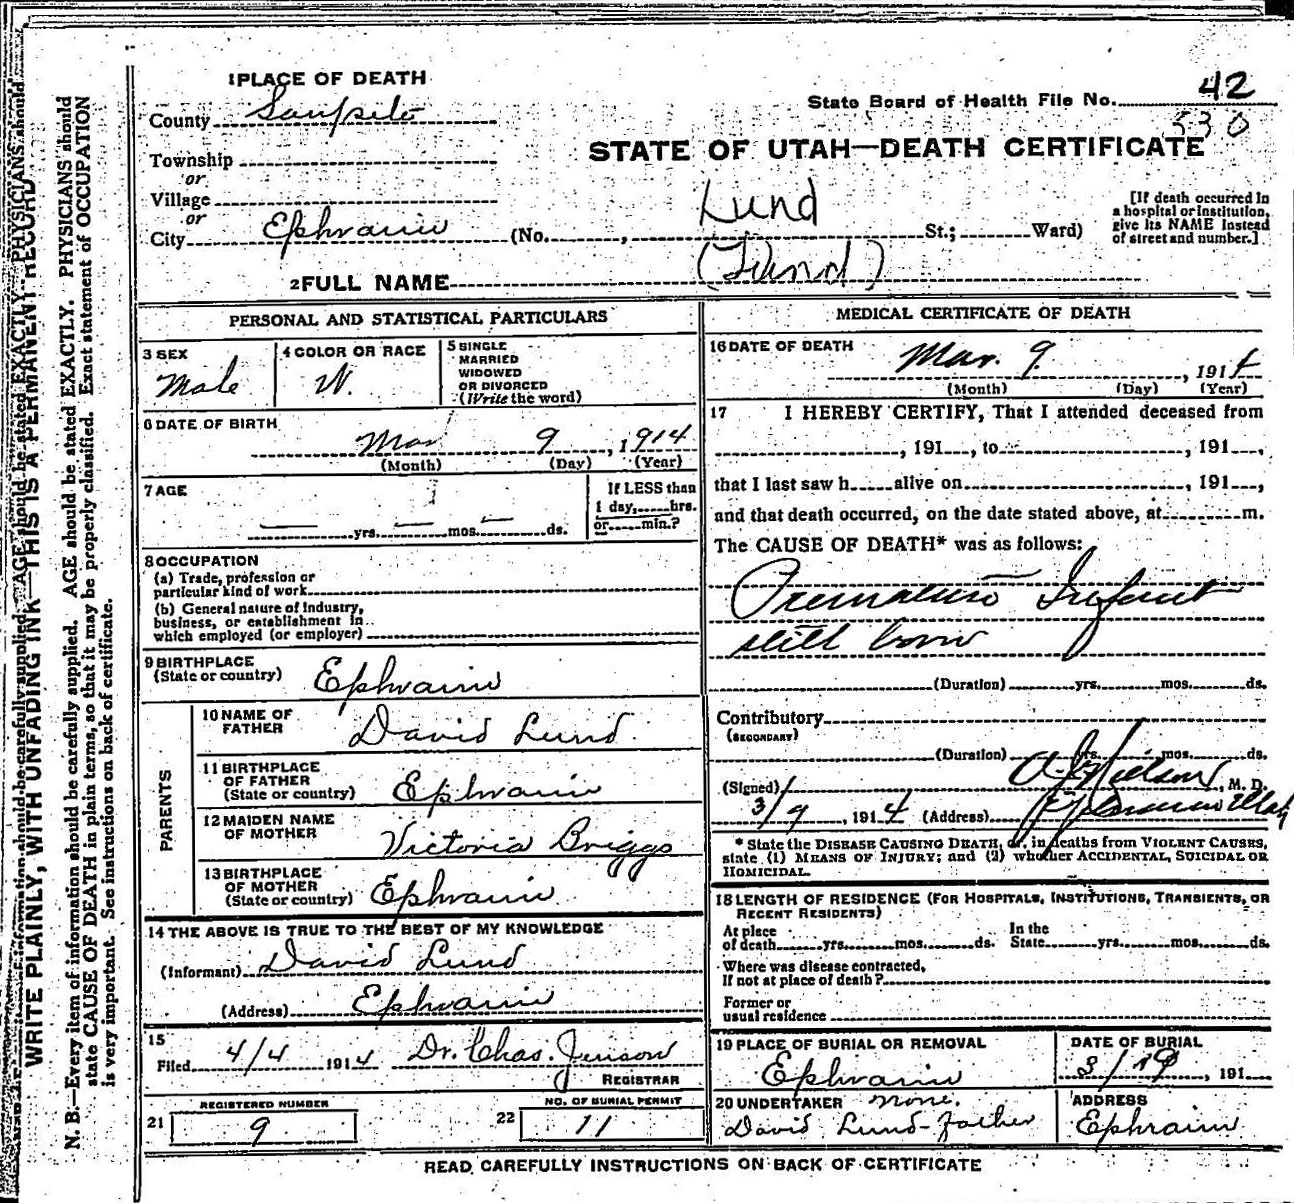 1 PLACE OF DEATH
County Sanpete
State Board of Health File No. 42
530
Township
or
Village
or
City Ephraim (No. , St.; Ward)
STATE OF UTAH—DEATH CERTIFICATE
Lund
[If death occurred in
a hospital or institution,
give its NAME instead
of street and number.]
2 FULL NAME (Lund)
PERSONAL AND STATISTICAL PARTICULARS
3 SEX
Male
4 COLOR OR RACE
W.
5 SINGLE
MARRIED
WIDOWED
OR DIVORCED
(Write the word)
6 DATE OF BIRTH
Mar 9, 1914
(Month) (Day) (Year)
7 AGE
— yrs. — mos. — ds.
If LESS than
1 day, hrs.
or min.?
8 OCCUPATION
(a) Trade, profession or
particular kind of work
(b) General nature of Industry,
business, or establishment in
which employed (or employer)
9 BIRTHPLACE
(State or country) Ephraim
PARENTS
10 NAME OF
FATHER David Lund
11 BIRTHPLACE
OF FATHER
(State or country) Ephraim
12 MAIDEN NAME
OF MOTHER Victoria Briggs
13 BIRTHPLACE
OF MOTHER
(State or country) Ephraim
14 THE ABOVE IS TRUE TO THE BEST OF MY KNOWLEDGE
(Informant) David Lund
(Address) Ephraim
15
Filed 4/4 1914 Dr. Chas. Jenson
REGISTRAR
REGISTERED NUMBER
21 9
NO. OF BURIAL PERMIT
22 11
MEDICAL CERTIFICATE OF DEATH
16 DATE OF DEATH
Mar. 9, 1914
(Month) (Day) (Year)
17 I HEREBY CERTIFY, That I attended deceased from
, 191 , to , 191 ,
that I last saw h alive on , 191 ,
and that death occurred, on the date stated above, at m.
The CAUSE OF DEATH* was as follows:
Premature Infant
still born
(Duration) yrs. mos. ds.
Contributory
(SECONDARY)
(Duration) yrs. mos. ds.
(Signed) Nielson, M. D.
3/9, 1914 (Address) Ephraim Utah
* State the DISEASE CAUSING DEATH, or, in deaths from VIOLENT CAUSES,
state (1) MEANS OF INJURY; and (2) whether ACCIDENTAL, SUICIDAL OR
HOMICIDAL.
18 LENGTH OF RESIDENCE (FOR HOSPITALS, INSTITUTIONS, TRANSIENTS, OR
RECENT RESIDENTS)
At place
of death yrs. mos. ds.
In the
State yrs. mos. ds.
Where was disease contracted,
If not at place of death?
Former or
usual residence
19 PLACE OF BURIAL OR REMOVAL
Ephraim
DATE OF BURIAL
, 191
20 UNDERTAKER none.
David Lund-father
ADDRESS
Ephraim
READ CAREFULLY INSTRUCTIONS ON BACK OF CERTIFICATE
WRITE PLAINLY, WITH UNFADING INK—THIS IS A PERMANENT RECORD
N. B.—Every item of information should be carefully supplied. AGE should be stated EXACTLY. PHYSICIANS should
state CAUSE OF DEATH in plain terms, so that it may be properly classified. Exact statement of OCCUPATION
is very important. See instructions on back of certificate.